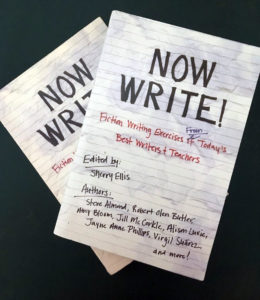 NOW
WRITE!
Fiction Writing Exercises From Today's
Best Writers + Teachers
Edited by:
Sherry Ellis
Authors:
Steve Almond, Robert Olen Butler,
Amy Bloom, Jill McCorkle, Alison Lurie,
Jayne Anne Phillips, Virgil Suárez
and more!
NOW
WRIT
Fiction